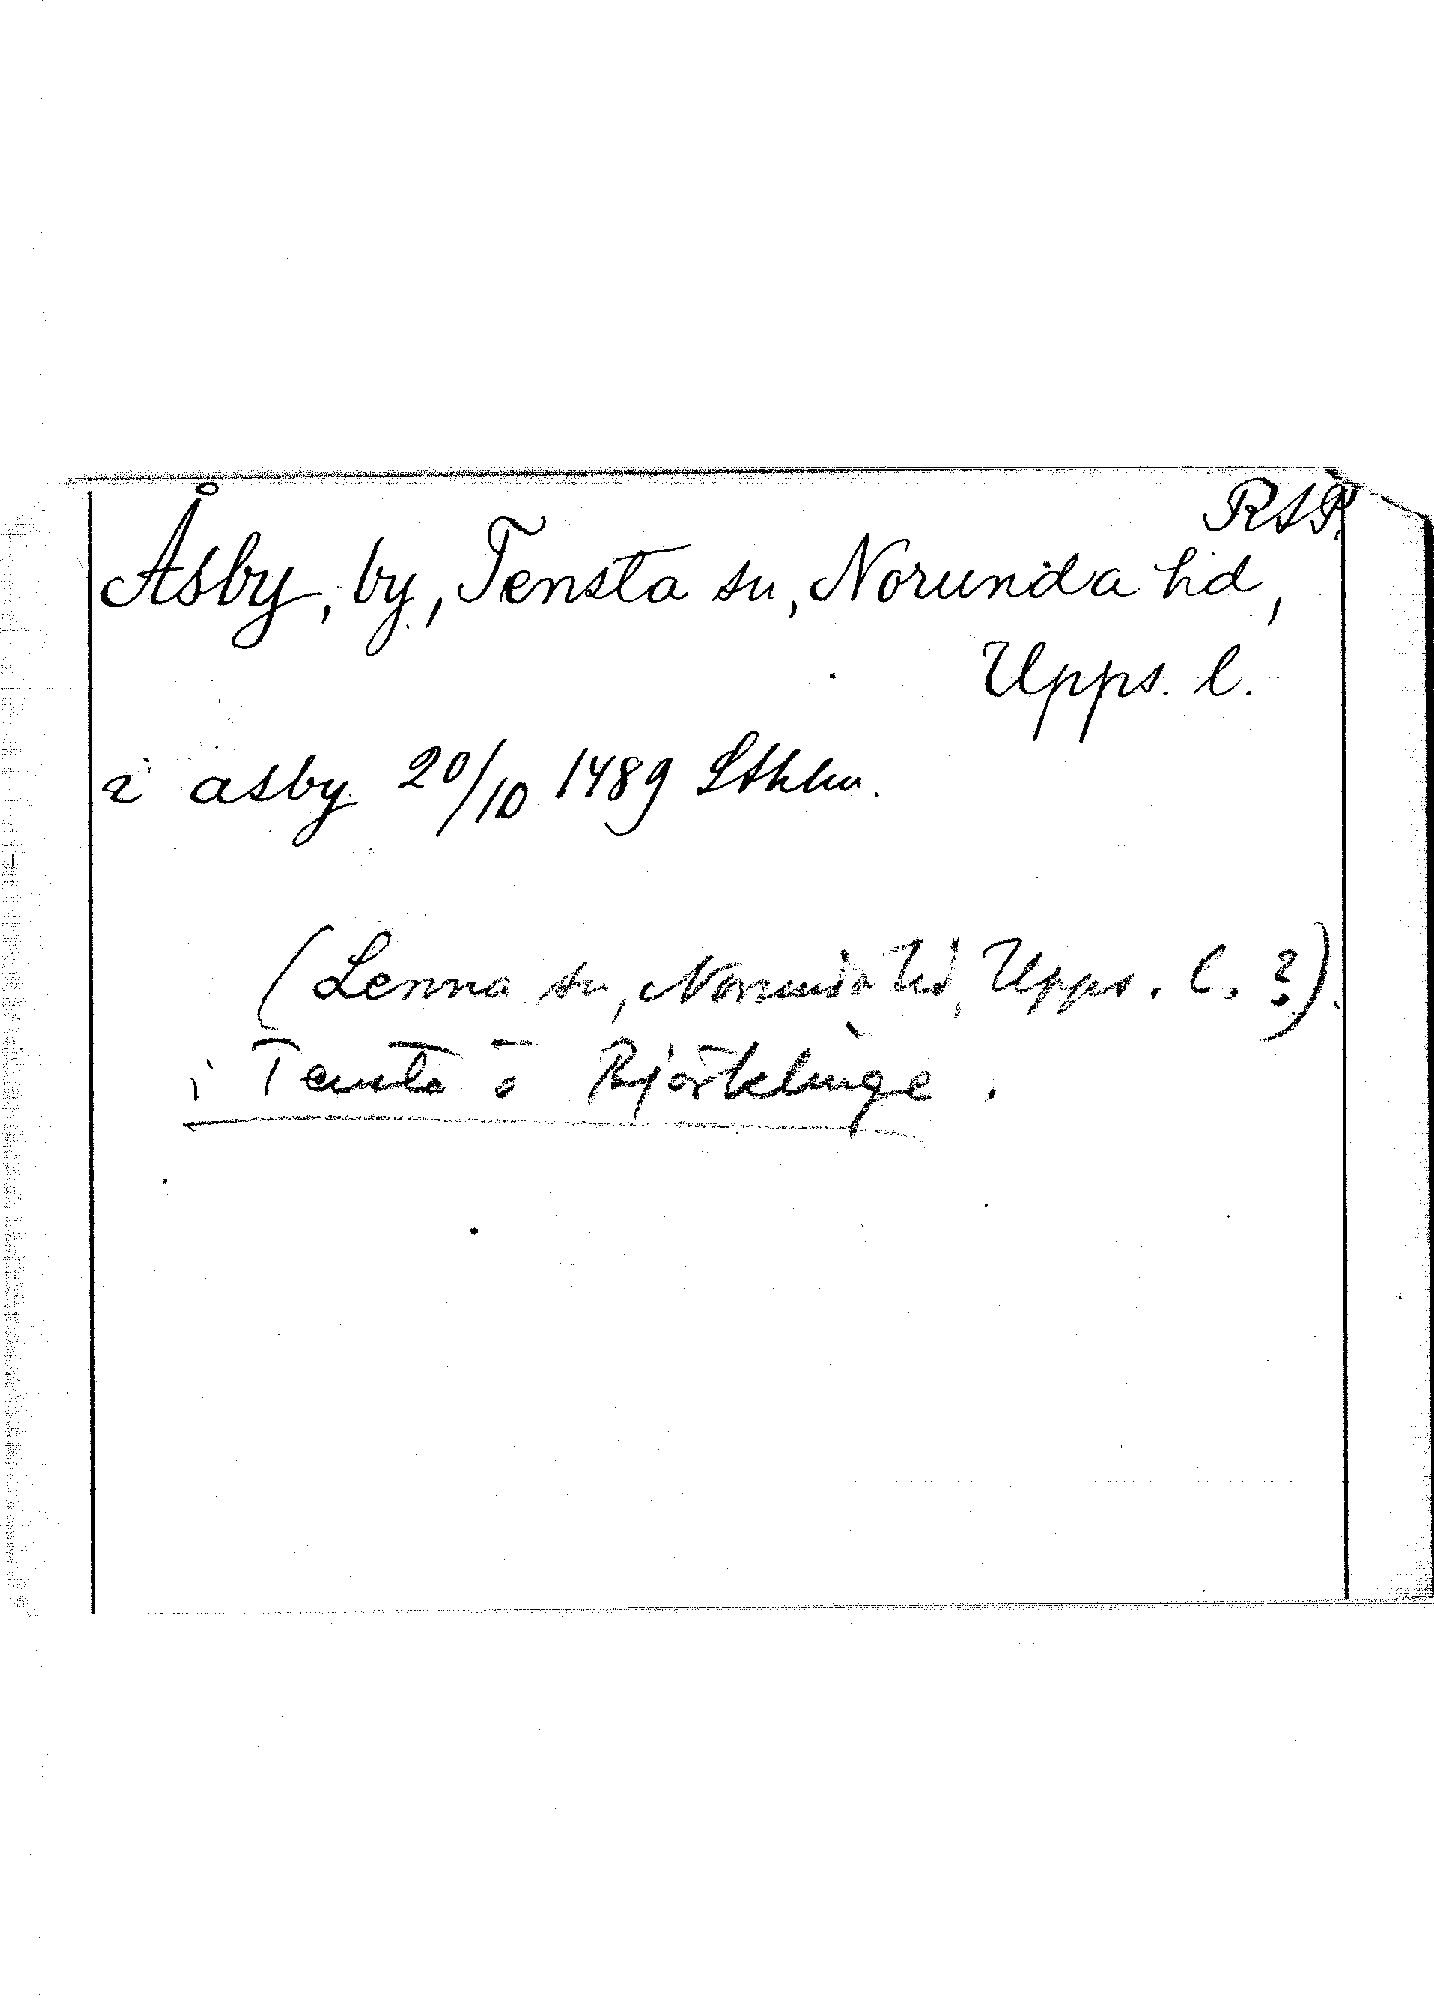 RAP.
Åsby, by, Tensta sn, Norunda hd,
Upps. l.
i asby 20/10 1489 Sthlm.
(Lenna sn, Norunda hd, Upps. l. ?)
i Tensta o Björklinge.